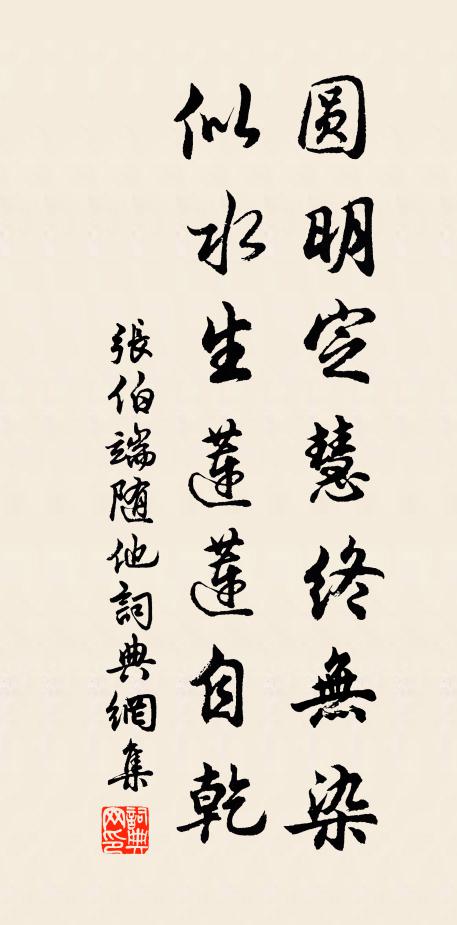 圓明定慧終無染
似水生蓮蓮自乾
張伯端随他詞典網集
詞典网印